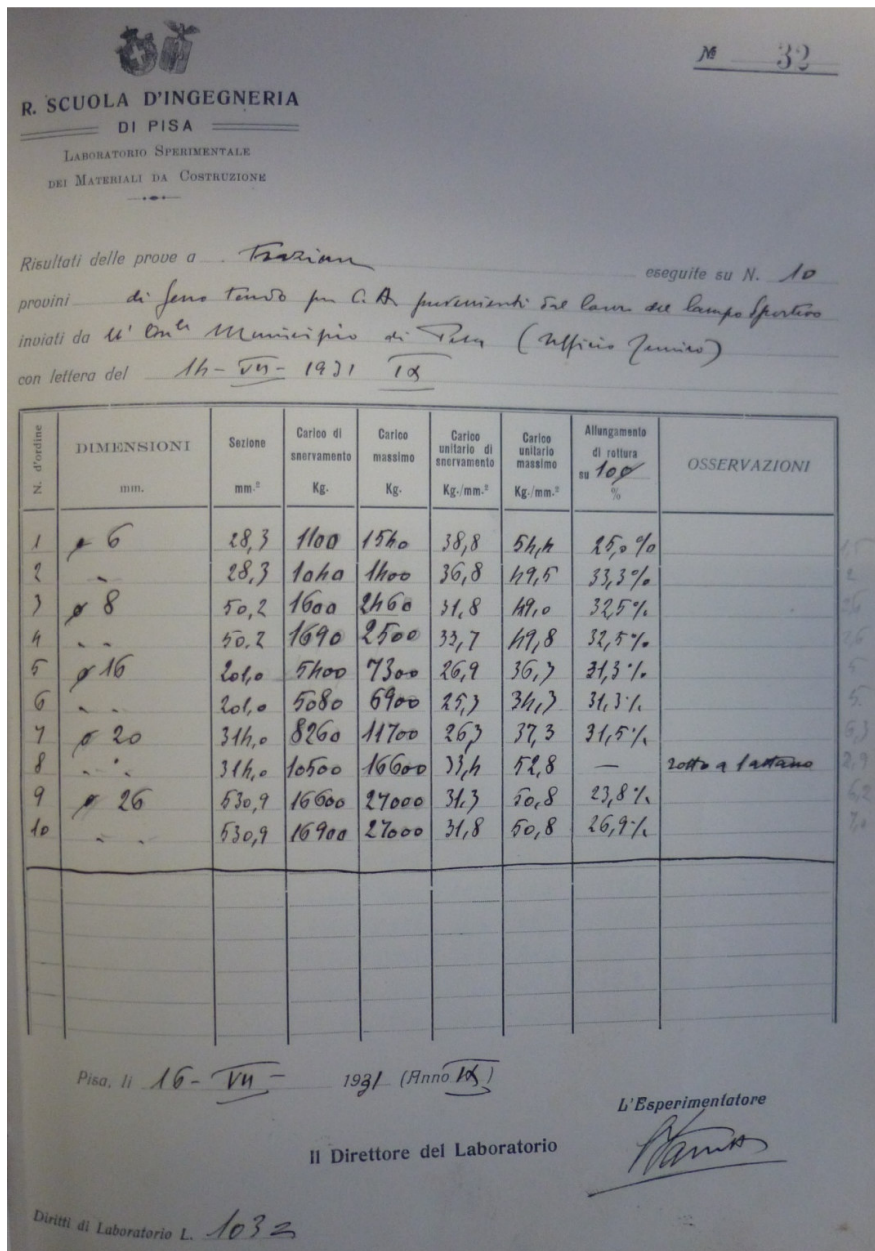 № 32
R. SCUOLA D'INGEGNERIA
DI PISA
LABORATORIO SPERIMENTALE
DEI MATERIALI DA COSTRUZIONE
Risultati delle prove a Trazione eseguite su N. 10
provini di ferro tondo per C.A. provenienti dal lavoro del Campo Sportivo
inviati da Municipio di Pisa (Ufficio
con lettera del 14-VII-1931 IX
N. d'ordine DIMENSIONI mm. Sezione mm.² Carico di snervamento Kg. Carico massimo Kg. Carico unitario di snervamento Kg./mm.² Carico unitario massimo Kg./mm.² Allungamento di rottura su 100 % OSSERVAZIONI
1 ø 6 28,3 1100 1540 38,8 54,4 25,0 %
2 " 28,3 1040 1400 36,8 49,5 33,3%
3 ø 8 50,2 1600 2460 31,8 49,0 32,5%
4 " " 50,2 1690 2500 33,7 49,8 32,5%
5 ø 16 201,0 5400 7300 26,9 36,3 31,3%
6 " " 201,0 5080 6900 25,3 34,3 31,3%
7 ø 20 314,0 8260 11700 26,3 37,3 31,5%
8 " " 314,0 10500 16600 33,4 52,8 —
9 ø 26 530,9 16600 27000 31,3 50,8 23,8%
10 " " 530,9 16900 27000 31,8 50,8 26,9%
Pisa, li 16-VII-1931 (Anno IX)
L'Esperimentatore
Il Direttore del Laboratorio
Diritti di Laboratorio L. 1032